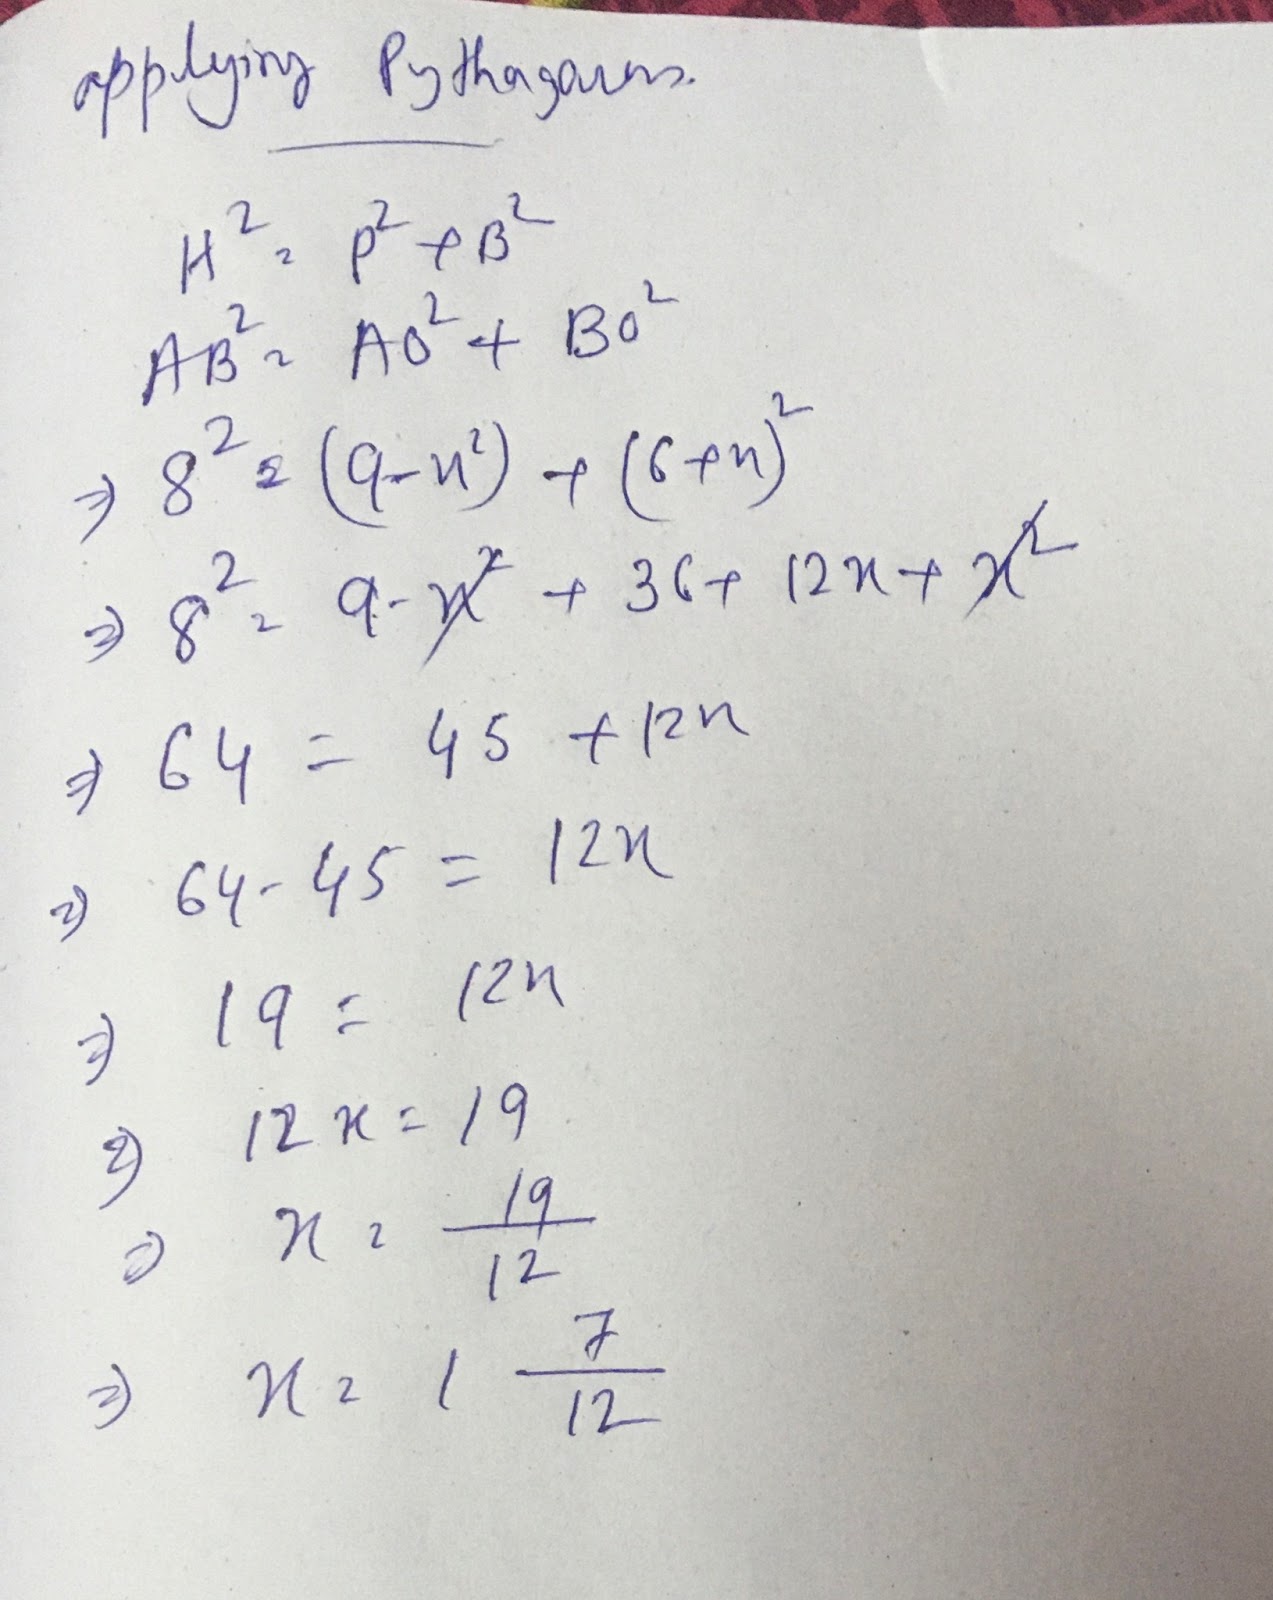 applying Pythagoras.
H² = P² + B²
AB² = AO² + BO²
⇒ 8² = (9-x²) + (6+x)²
⇒ 8² = 9-x² + 36+ 12x + x²
⇒ 64 = 45 + 12x
⇒ 64-45 = 12x
⇒ 19 = 12x
⇒ 12x = 19
⇒ x = 19/12
⇒ x = 1 7/12